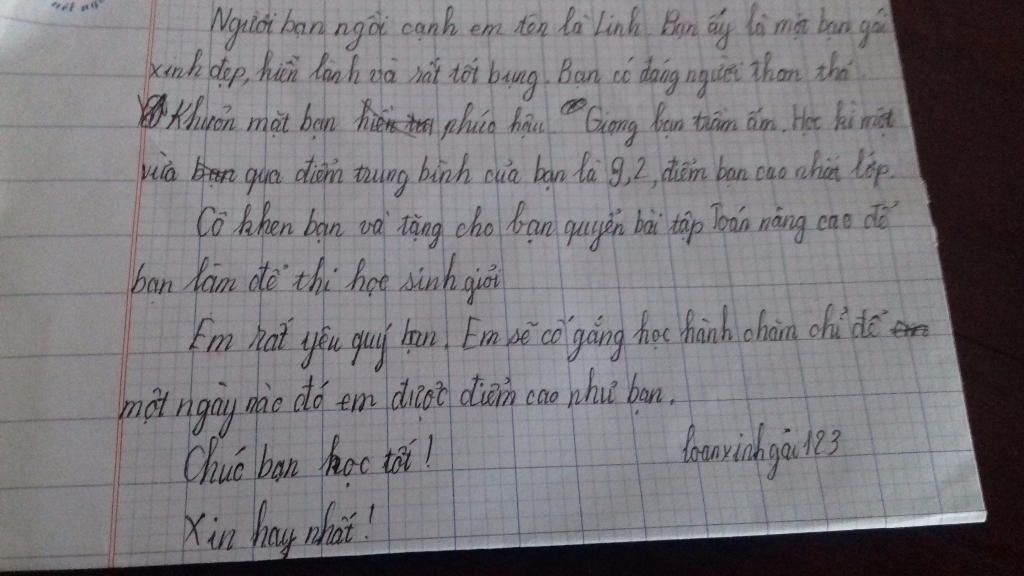 Người bạn ngồi cạnh em tên là Linh. Bạn ấy là một bạn gái
xinh đẹp, hiền lành và rất tốt bụng. Bạn có dáng người thon thả.
Khuôn mặt bạn phúc hậu. Giọng bạn trầm ấm. Học kì một
vừa qua điểm trung bình của bạn là 9,2, điểm bạn cao nhất lớp.
Cô khen bạn và tặng cho bạn quyển bài tập Toán nâng cao để
bạn làm để thi học sinh giỏi
Em rất yêu quý bạn. Em sẽ cố gắng học hành chăm chỉ để
một ngày nào đó em được điểm cao như bạn.
Chúc bạn học tốt!
loanxinhgái123
Xin hay nhất!